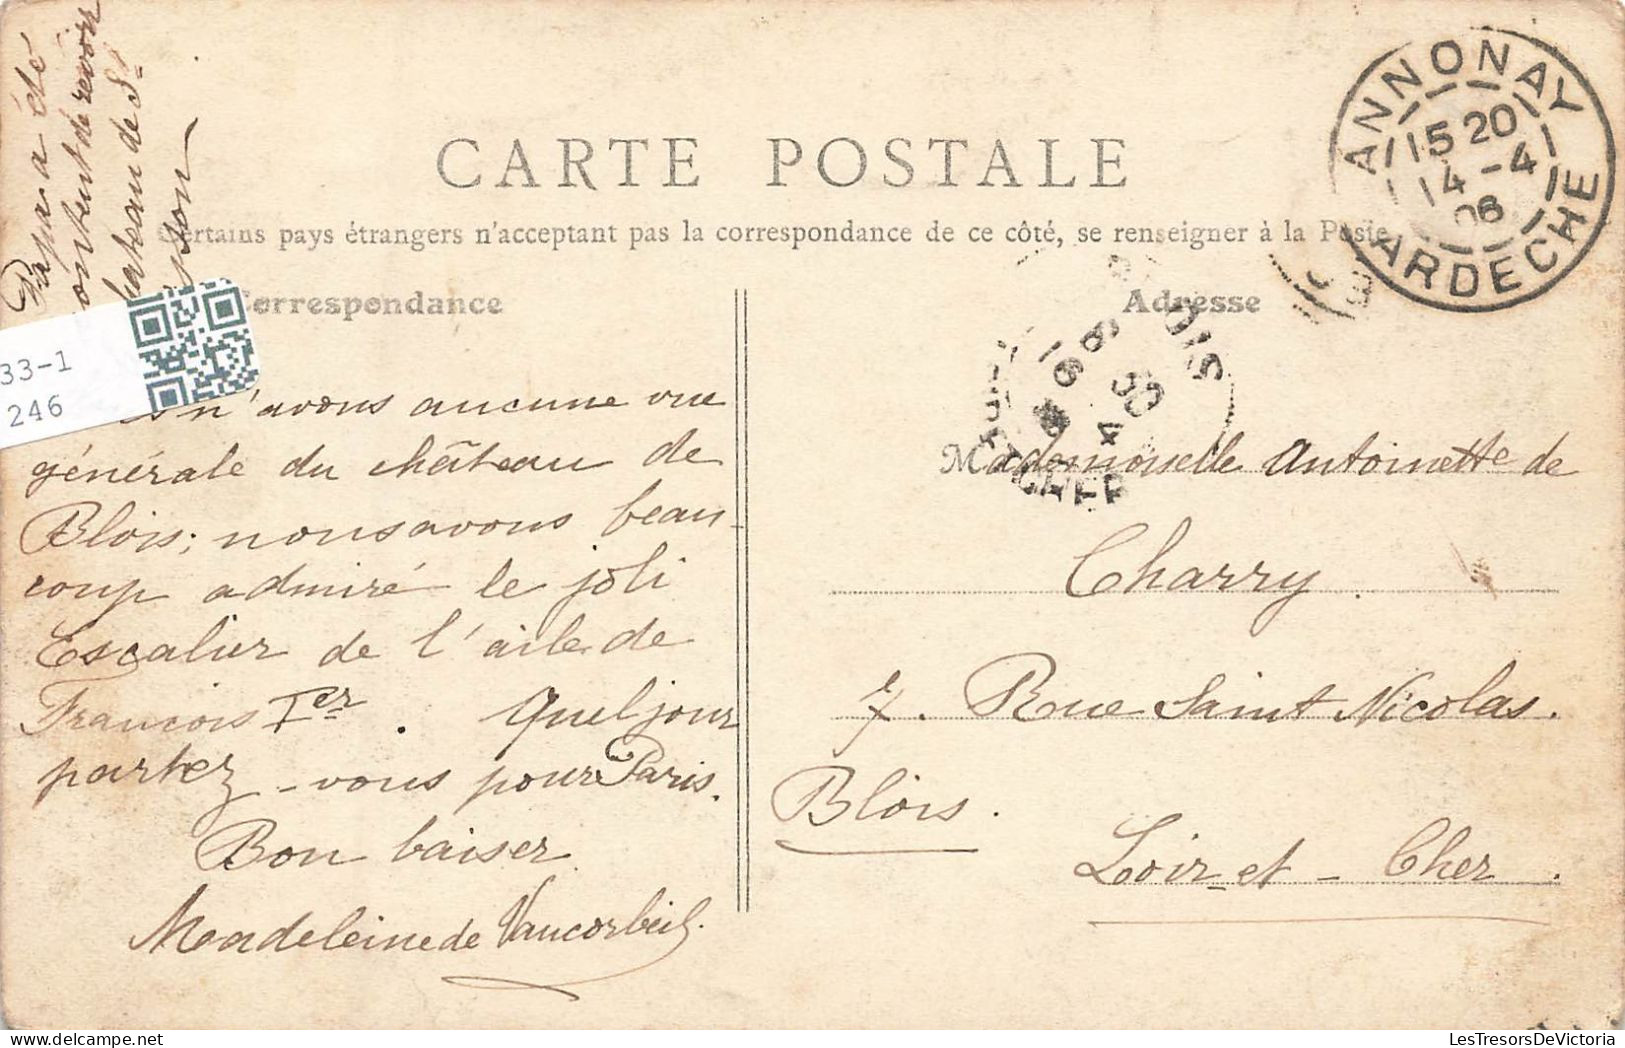 Papa a été
content de revoir
château de St
CARTE POSTALE
Certains pays étrangers n'acceptant pas la correspondance de ce côté, se renseigner à la Poste
ANNONAY
15 20
14 - 4
06
ARDECHE
Correspondance
Adresse
33-1
246
n'avons aucune vue
générale du château de
Blois; nous avons beau-
coup admiré le joli
Escalier de l'aile de
Francois Ier. Quel jour
partez-vous pour Paris.
Bon baiser
Madeleine de Vaucorbeil.
Mademoiselle Antoinette de
Charry.
7. Rue Saint Nicolas.
Blois.
Loir-et-Cher.
LesTresorsDeVictoria